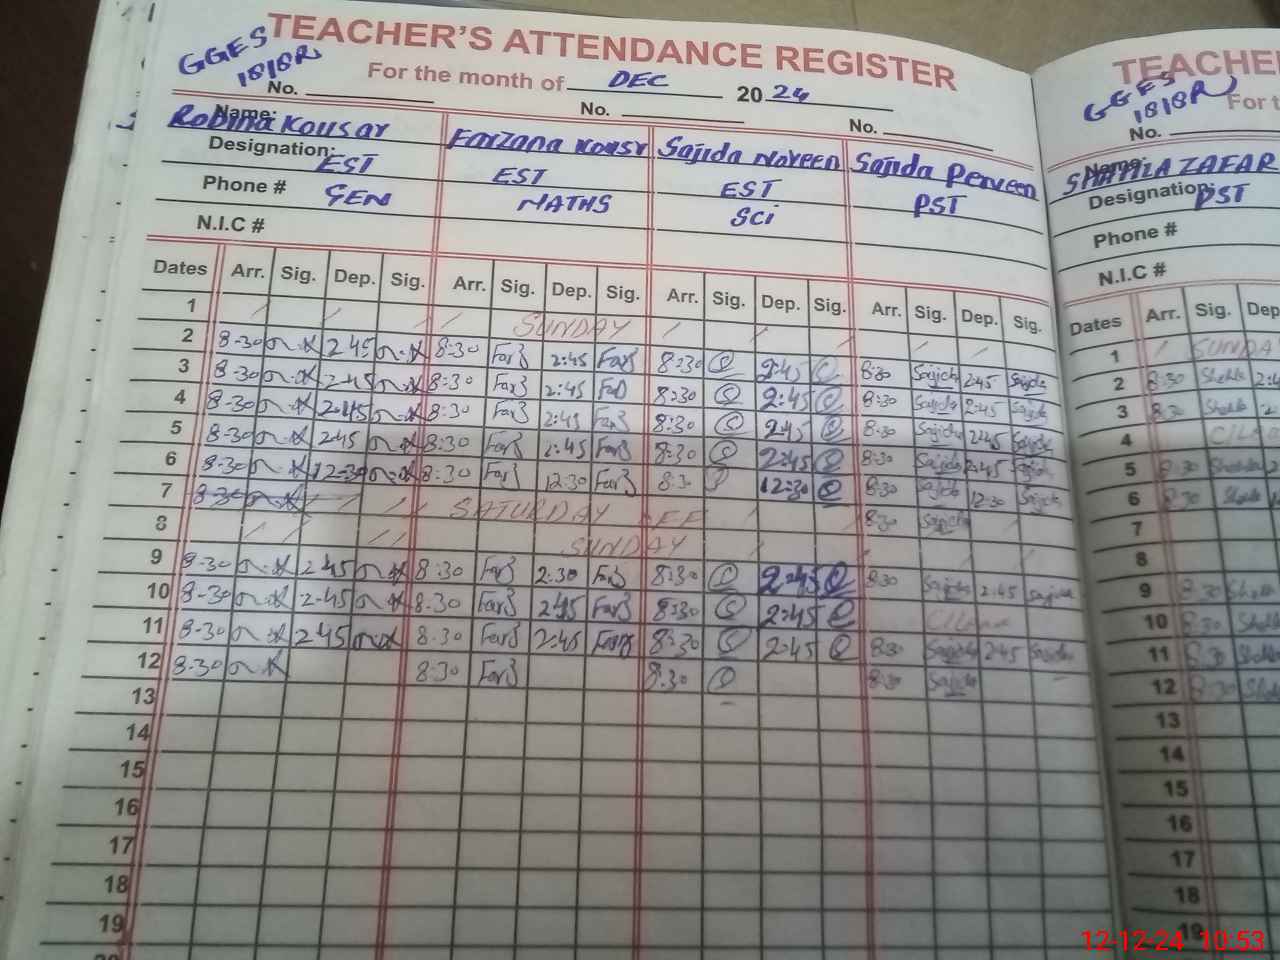 TEACHER'S ATTENDANCE REGISTER
GGES
18/8R
For the month of DEC 2024
No. No. No.
Name: Robina Kousar Farzana Kousr Sajida Noreen Sajida Perveen
Designation: EST EST EST PST
Phone # GEN MATHS SCi
N.I.C #
Dates Arr. Sig. Dep. Sig. Arr. Sig. Dep. Sig. Arr. Sig. Dep. Sig. Arr. Sig. Dep. Sig.
1 SUNDAY
2 8-30 2 45 8:30 Far 2:45 Far 8:30 2:45 8:30 Sajida 2:45 Sajida
3 8-30 2-45 8:30 Far 2:45 Far 8:30 2:45 8:30 Sajida 2:45 Sajida
4 8-30 2-45 8:30 Far 2:45 Far 8:30 2:45 8:30 Sajida 2:45 Sajida
5 8-30 2-45 8:30 Far 2:45 Far 8:30 2:45 8:30 Sajida 2:45 Sajida
6 8-30 12-30 8:30 Far 12:30 Far 8:30 12:30 8:30 Sajida 12:30 Sajida
7 8-30 SATURDAY 8:30 Sajida
8 SUNDAY
9 8-30 2 45 8:30 Far 2:30 Far 8:30 2:45 8:30 Sajida 2:45 Sajida
10 8-30 2-45 8:30 Far 2:45 Far 8:30 2:45 C/Leave
11 8-30 2 45 8:30 Far 2:45 Far 8:30 2:45 8:30 Sajida 2:45 Sajida
12 8-30 8:30 Far 8:30 8:30 Sajida
13
14
15
16
17
18
19
20
TEACHE
GGES
18/8R
For t
No.
Name: SHAHLA ZAFAR
Designation: PST
Phone #
N.I.C #
Dates Arr. Sig. Dep
1 SUNDA
2 8:30 Shahla 2:4
3 8:30 Shahla 2
4 C/Lea
5 8:30 Shahla 2
6 8:30 Shahla
7
8
9 8:30 Shahla
10 8:30 Shahla
11 8:30 Shahla
12 8:30 Shahla
13
14
15
16
17
18
19
12-12-24 10:53